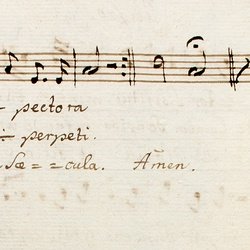 - pectora
÷ perpeti.
Sæ = = cula. Amen.